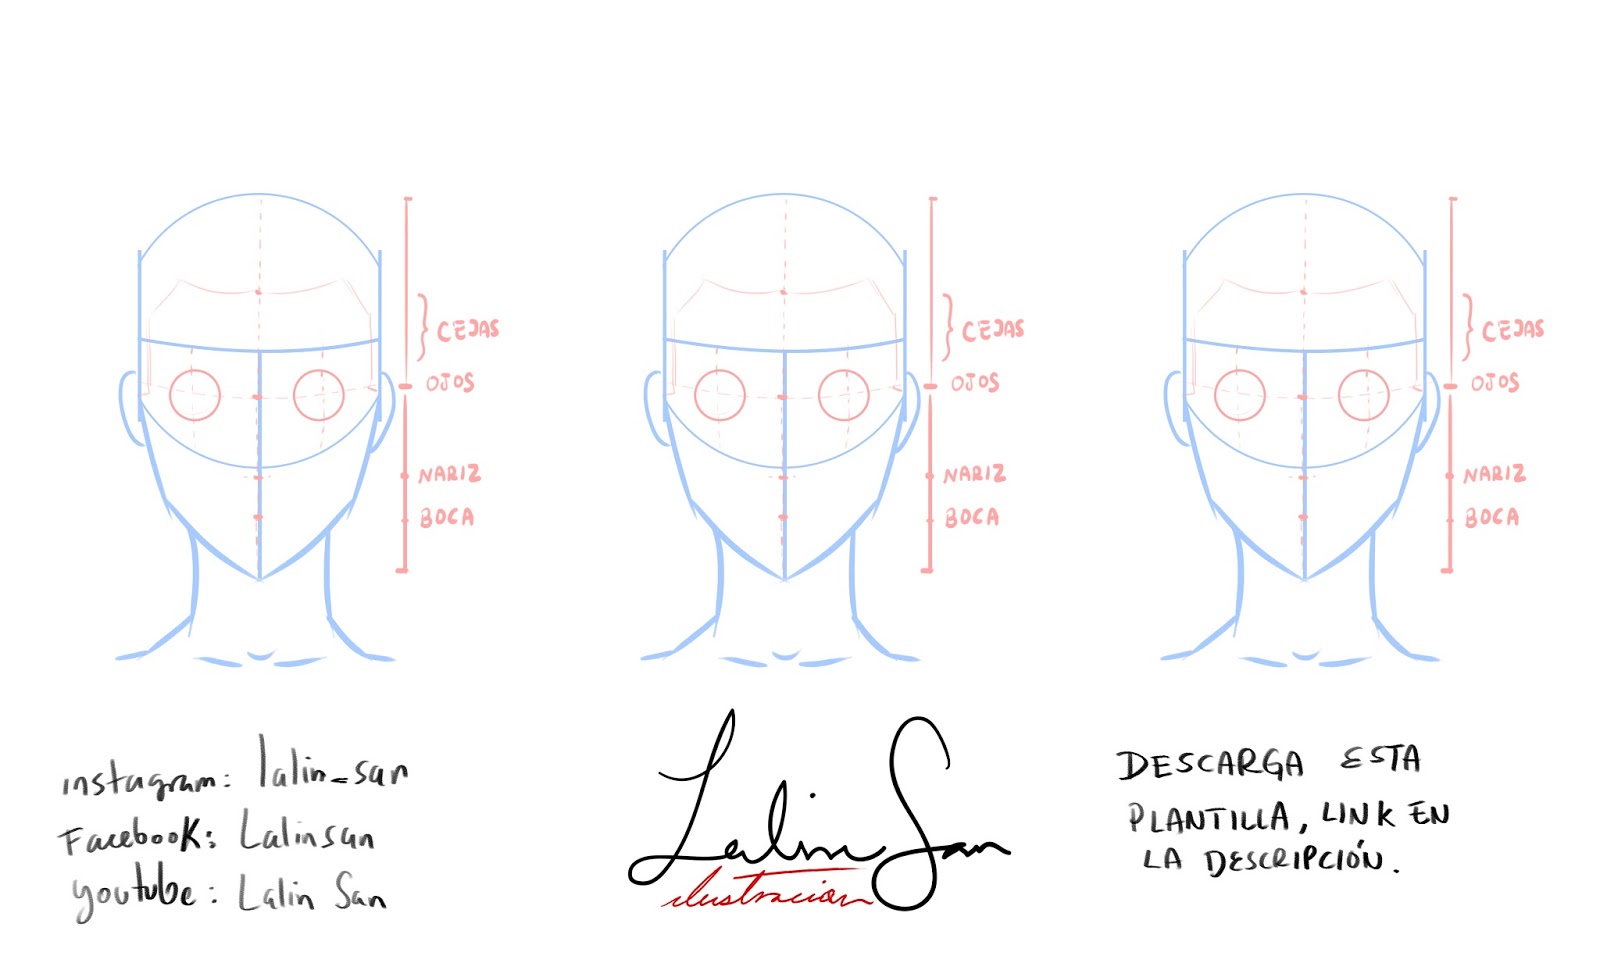 CEJAS
OJOS
NARIZ
BOCA
CEJAS
OJOS
NARIZ
BOCA
CEJAS
OJOS
NARIZ
BOCA
instagram: lalin_san
Facebook: Lalinsan
youtube: Lalin San
Lalin San
ilustracion
DESCARGA ESTA
PLANTILLA, LINK EN
LA DESCRIPCIÓN.